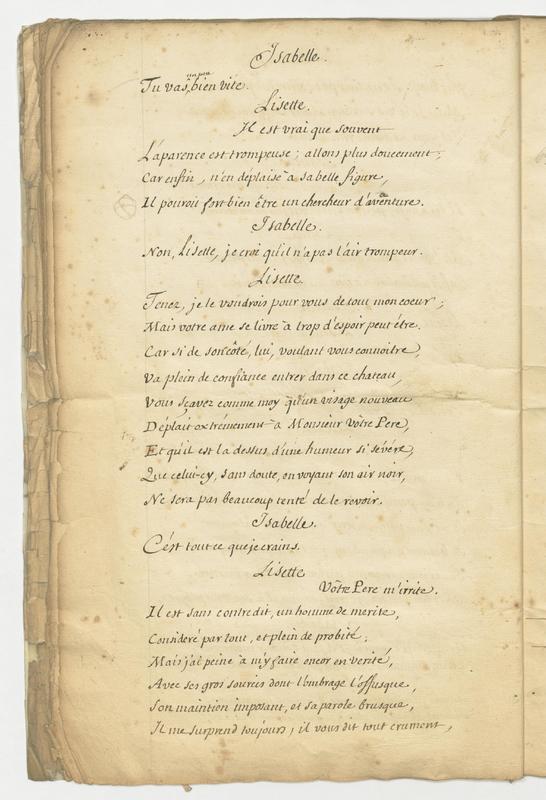 Isabelle.
Tu vas un peu bien vite.
Lisette.
Il est vrai que souvent
L'aparence est trompeuse; allons plus doucement;
Car enfin, n'en deplaise à sa belle figure,
Il pouroit fort bien être un chercheur d'aventure.
Isabelle.
Non, Lisette, je croi qu'il n'a pas l'air trompeur.
Lisette.
Tenez, je le voudrois pour vous de tout mon coeur;
Mais votre ame se livre à trop d'espoir peut être.
Car si de son côté, lui, voulant vous connoitre,
Va plein de confiance entrer dans ce chateau,
Vous sçavez comme moy qu'un visage nouveau
Déplait extrémement à Monsieur Vôtre Pere,
Et qu'il est la dessus d'une humeur si sévére,
Que celui-cy, sans doute, en voyant son air noir,
Ne sera pas beaucoup tenté de le revoir.
Isabelle.
C'est tout ce que je crains.
Lisette
Vôtre Pere m'irrite.
Il est sans contredit, un homme de merite,
Consideré par tout, et plein de probité;
Mais j'ai peine à m'y faire encor en verité,
Avec ses gros sourcis dont l'ombrage l'offusque,
Son maintien imposant, et sa parole brusque,
Il me surprend toujours; il vous dit tout crument,